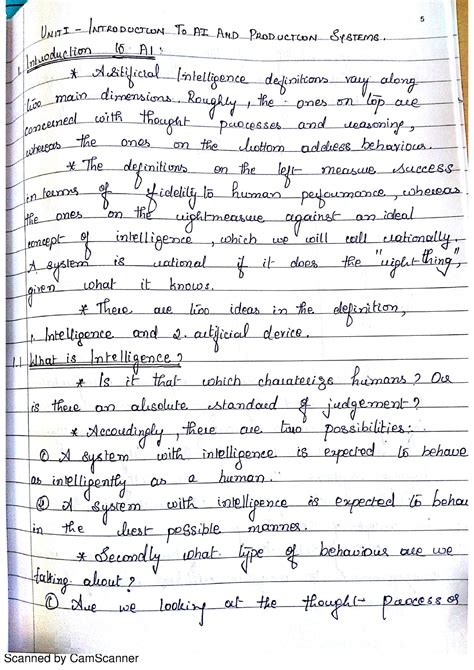 5
UNIT I - INTRODUCTION TO AI AND PRODUCTION SYSTEMS.
1. Introduction to AI:
* Artificial Intelligence definitions vary along
two main dimensions. Roughly, the ones on top are
concerned with thought processes and reasoning,
whereas the ones on the bottom address behaviour.
* The definitions on the left measure success
in terms of fidelity to human performance, whereas
the ones on the right measure against an ideal
concept of intelligence, which we will call rationally.
A system is rational if it does the "right thing",
given what it knows.
* There are two ideas in the definition,
1. Intelligence and 2. artificial device.
1.1 What is Intelligence?
* Is it that which charaterize humans? Or
is there an absolute standard of judgement?
* Accordingly, there are two possibilities:
① A system with intelligence is expected to behave
as intelligently as a human.
② A system with intelligence is expected to behau
in the best possible manner.
* Secondly what type of behaviour are we
talking about?
① Are we looking at the thought process or
Scanned by CamScanner